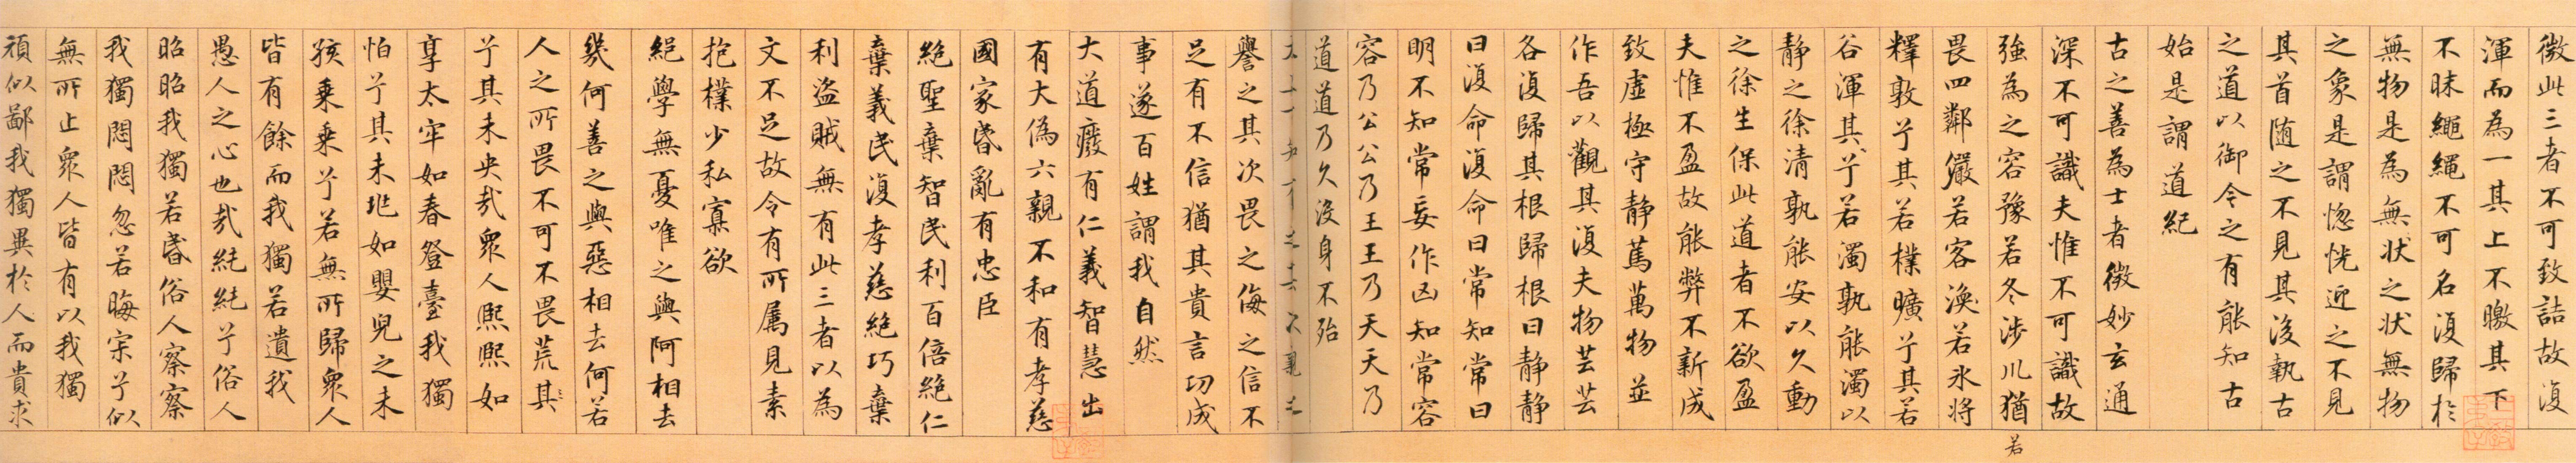 微此三者不可致詰故復
渾而為一其上不曒其下
不昧繩繩不可名復歸於
無物是為無狀之状無物
之象是謂惚恍近之不見
其首随之不見其後執古
之道以御今之有能知古
始是謂道紀
古之善為士者微妙玄通
深不可識夫惟不可識故
強為之容豫若冬涉川猶
若
畏四鄰儼若客渙若氷将
釋敦兮其若樸曠兮其若
谷渾其兮若濁孰能濁以
静之徐清孰能安以久動
之徐生保此道者不欲盈
夫惟不盈故能弊不新成
致虛極守静萬萬物並
作吾以觀其復夫物芸芸
各復歸其根歸根曰静静
曰復命復命曰常知常曰
明不知常妄作凶知常容
容乃公公乃王王乃天天乃
道道乃久没身不殆
太上下知有之其次親之
譽之其次畏之侮之信不
足有不信猶其貴言功成
事遂百姓謂我自然
大道癈有仁義智慧出
有大偽六親不和有孝慈
國家昏亂有忠臣
絶聖棄智民利百倍絶仁
棄義民復孝慈絶巧棄
利盗賊無有此三者以為
文不足故令有所属見素
抱樸少私寡欲
絕學無憂唯之與阿相去
幾何善之與惡相去何若
人之所畏不可不畏荒其
兮其未央哉衆人熙熙如
享太牢如春登臺我獨
怕兮其未兆如嬰兒之未
孩乗乗兮若無所歸衆人
皆有餘而我獨若遺我
愚人之心也哉純純兮俗人
昭昭我獨若昏俗人察察
我獨悶悶忽若晦寂兮似
無所止衆人皆有以我獨
頑似鄙我獨異於人而貴求